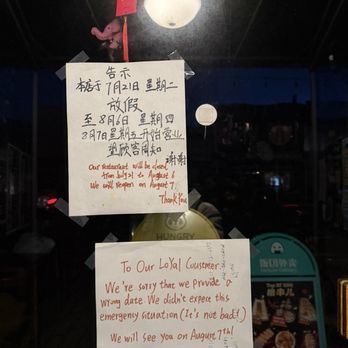 告示
本店于7月21日 星期二
放假
至8月6日 星期四
8月7日星期五开始营业
望顾客周知
谢谢
Our restaurant will be closed
from July 21 to August 6
We will reopen on August 7.
Thank You
HUNGRY
To Our Loyal Customer:
We're sorry that we provide a
wrong date We didn't expect this
emergency situation (It's not bad!)
We will see you on August 7th!
饭团外卖